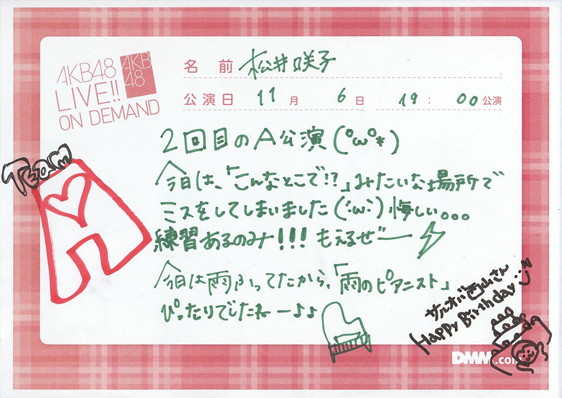 AKB48
LIVE!!
ON DEMAND
AKB
48
名 前 松井咲子
公演日 11月 6日 19:00公演
TEAM
A
2回目のA公演(°ω°*)
今日は、「こんなとこで!?」みたいな場所で
ミスをしてしまいました(´・ω・`)悔しい。。。
練習あるのみ!!!もえるぜー
今日は雨ふってたから、「雨のピアニスト」
ぴったりでしたねー♪♪
さん
Happy Birthday
DMM.com